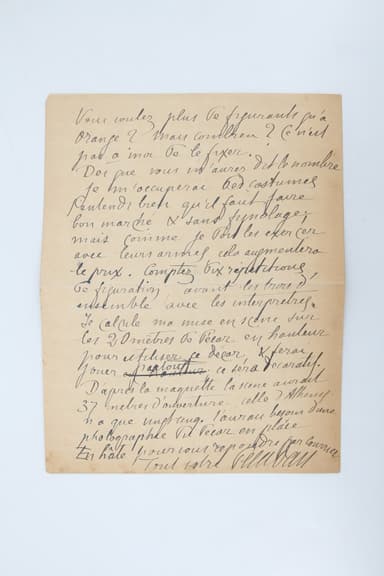 Vous voulez plus de figurants qu'à
Orange? mais combien? Ce n'est
pas à moi de le fixer.
Dès que vous m'aurez dit le nombre
je m'occuperai des costumes
J'entends bien qu'il faut faire
bon marché & sans fignolage,
mais comme je dois les exercer
avec leurs armes cela augmentera
le prix. Comptez dix répétitions
de figuration avant les trois d'
ensemble avec les interprètes.
Je calcule ma mise en scène sur
les 20 mètres de décor en hauteur
pour utiliser ce décor, & ferai
jouer partout ce sera décoratif.
D'après la maquette la scène aurait
37 mètres d'ouverture. celle d'Athènes
n'a que vingt cinq. J'aurai besoin d'une
photographie du décor en place
En hâte pour vous répondre par courrier
Tout votre